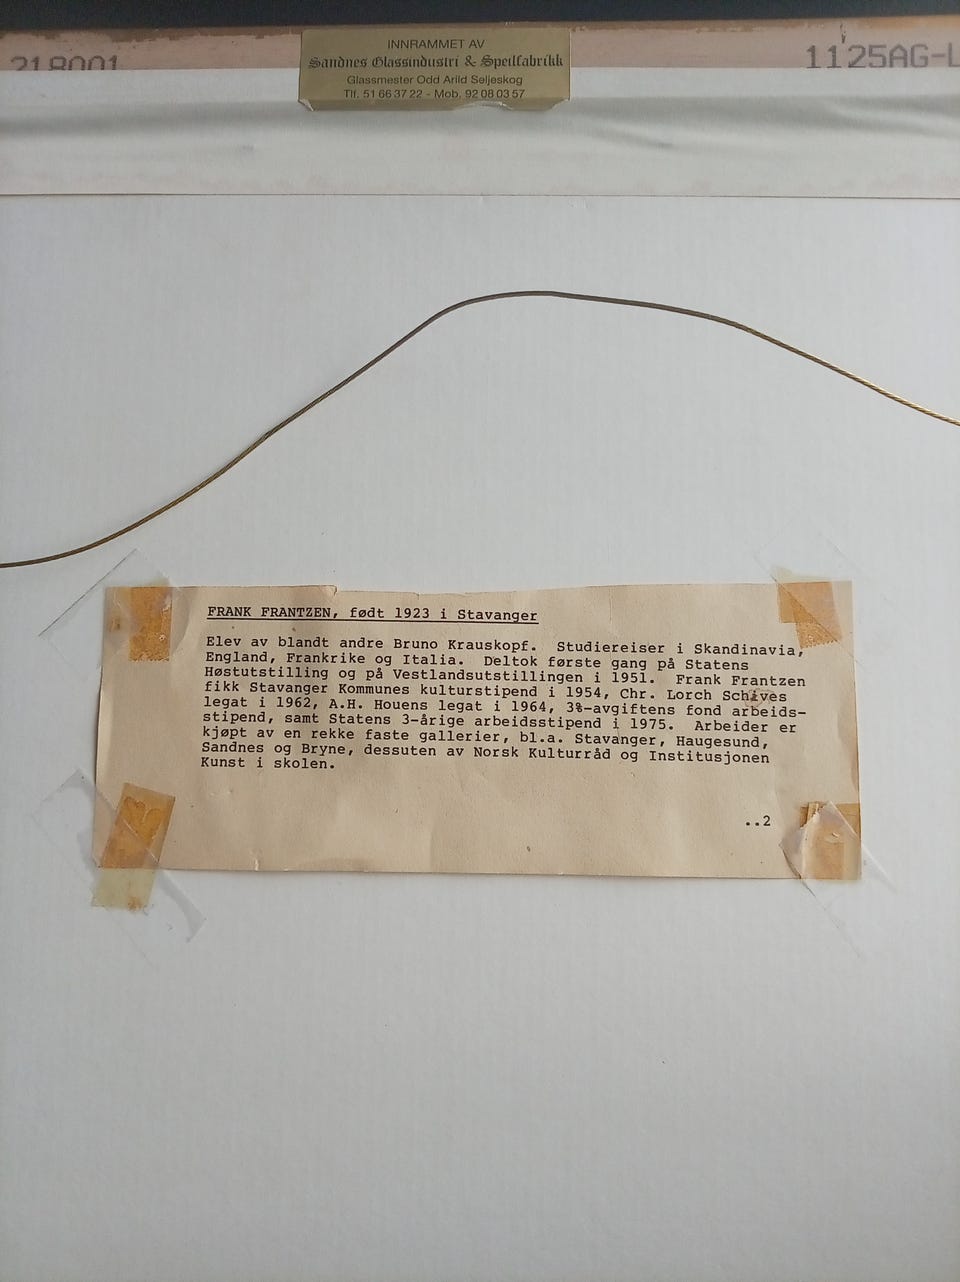 218001
INNRAMMET AV
Sandnes Glassindustri & Speilfabrikk
Glassmester Odd Arild Seljeskog
Tlf. 51 66 37 22 - Mob. 92 08 03 57
1125AG-L
FRANK FRANTZEN, født 1923 i Stavanger
Elev av blandt andre Bruno Krauskopf. Studiereiser i Skandinavia,
England, Frankrike og Italia. Deltok første gang på Statens
Høstutstilling og på Vestlandsutstillingen i 1951. Frank Frantzen
fikk Stavanger Kommunes kulturstipend i 1954, Chr. Lorch Schives
legat i 1962, A.H. Houens legat i 1964, 3%-avgiftens fond arbeids-
stipend, samt Statens 3-årige arbeidsstipend i 1975. Arbeider er
kjøpt av en rekke faste gallerier, bl.a. Stavanger, Haugesund,
Sandnes og Bryne, dessuten av Norsk Kulturråd og Institusjonen
Kunst i skolen.
..2